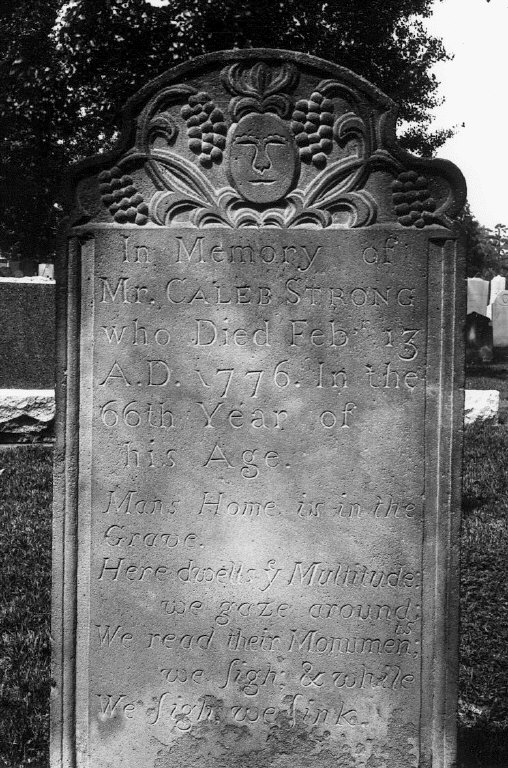 In Memory of
Mr. CALEB STRONG
who Died Febry 13
A.D. 1776. In the
66th Year of
his Age.
Mans Home is in the
Grave.
Here dwells ye Multitude:
we gaze around;
We read their Monuments;
we ſigh; & while
We ſigh, we ſink.